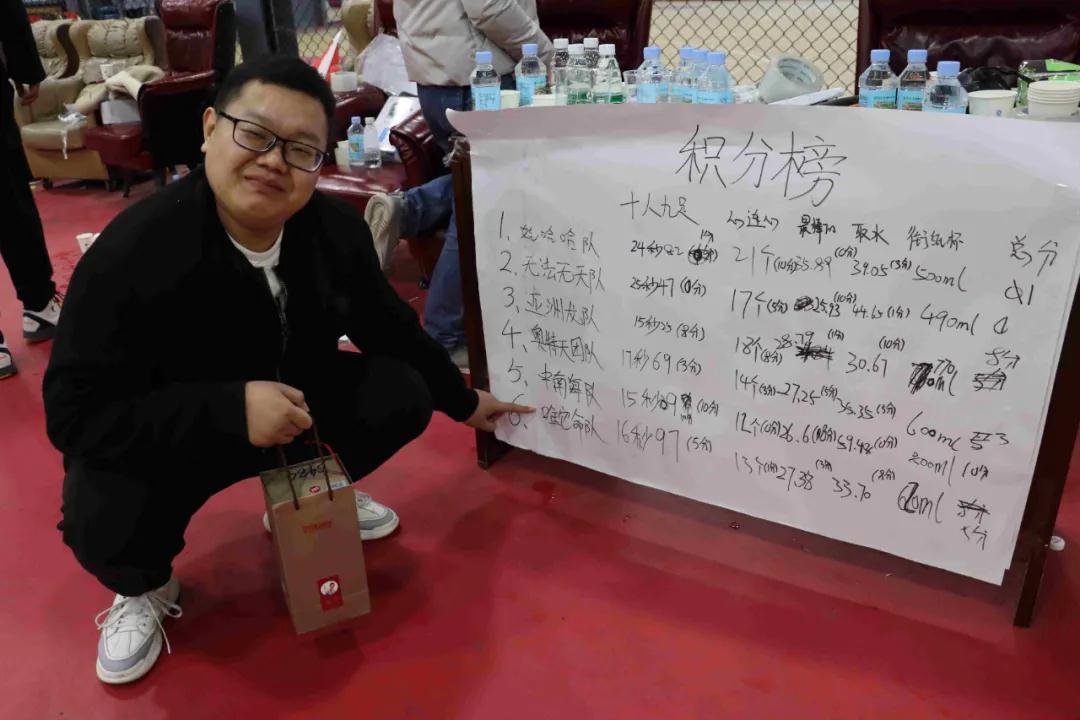 积分榜
十人九足 取水 衔纸杯 总分
1、娃哈哈队 24秒82 (1分) 21个(10分) 35.89 (0分) 39.05(3分) 500ml
2、无法无天队 25秒47 (0分) 17个(5分) 25.93 (10分) 44.65(1分) 490ml
3、亚洲龙队 15秒23 (8分) 18个(8分) 28.79 (1分) 30.67 (10分) 770ml 8分
4、奥特天团队 17秒69 (3分) 14个(3分) 27.25(5分) 35.35 600ml 3
5、中南海队 15秒09 (10分) 12个(0分) 26.6(8分) 59.48(0分) 800ml 10分
6、唯它命队 16秒97 (5分) 13个(1分) 27.38 (3分) 33.70 (8分) ml 5分